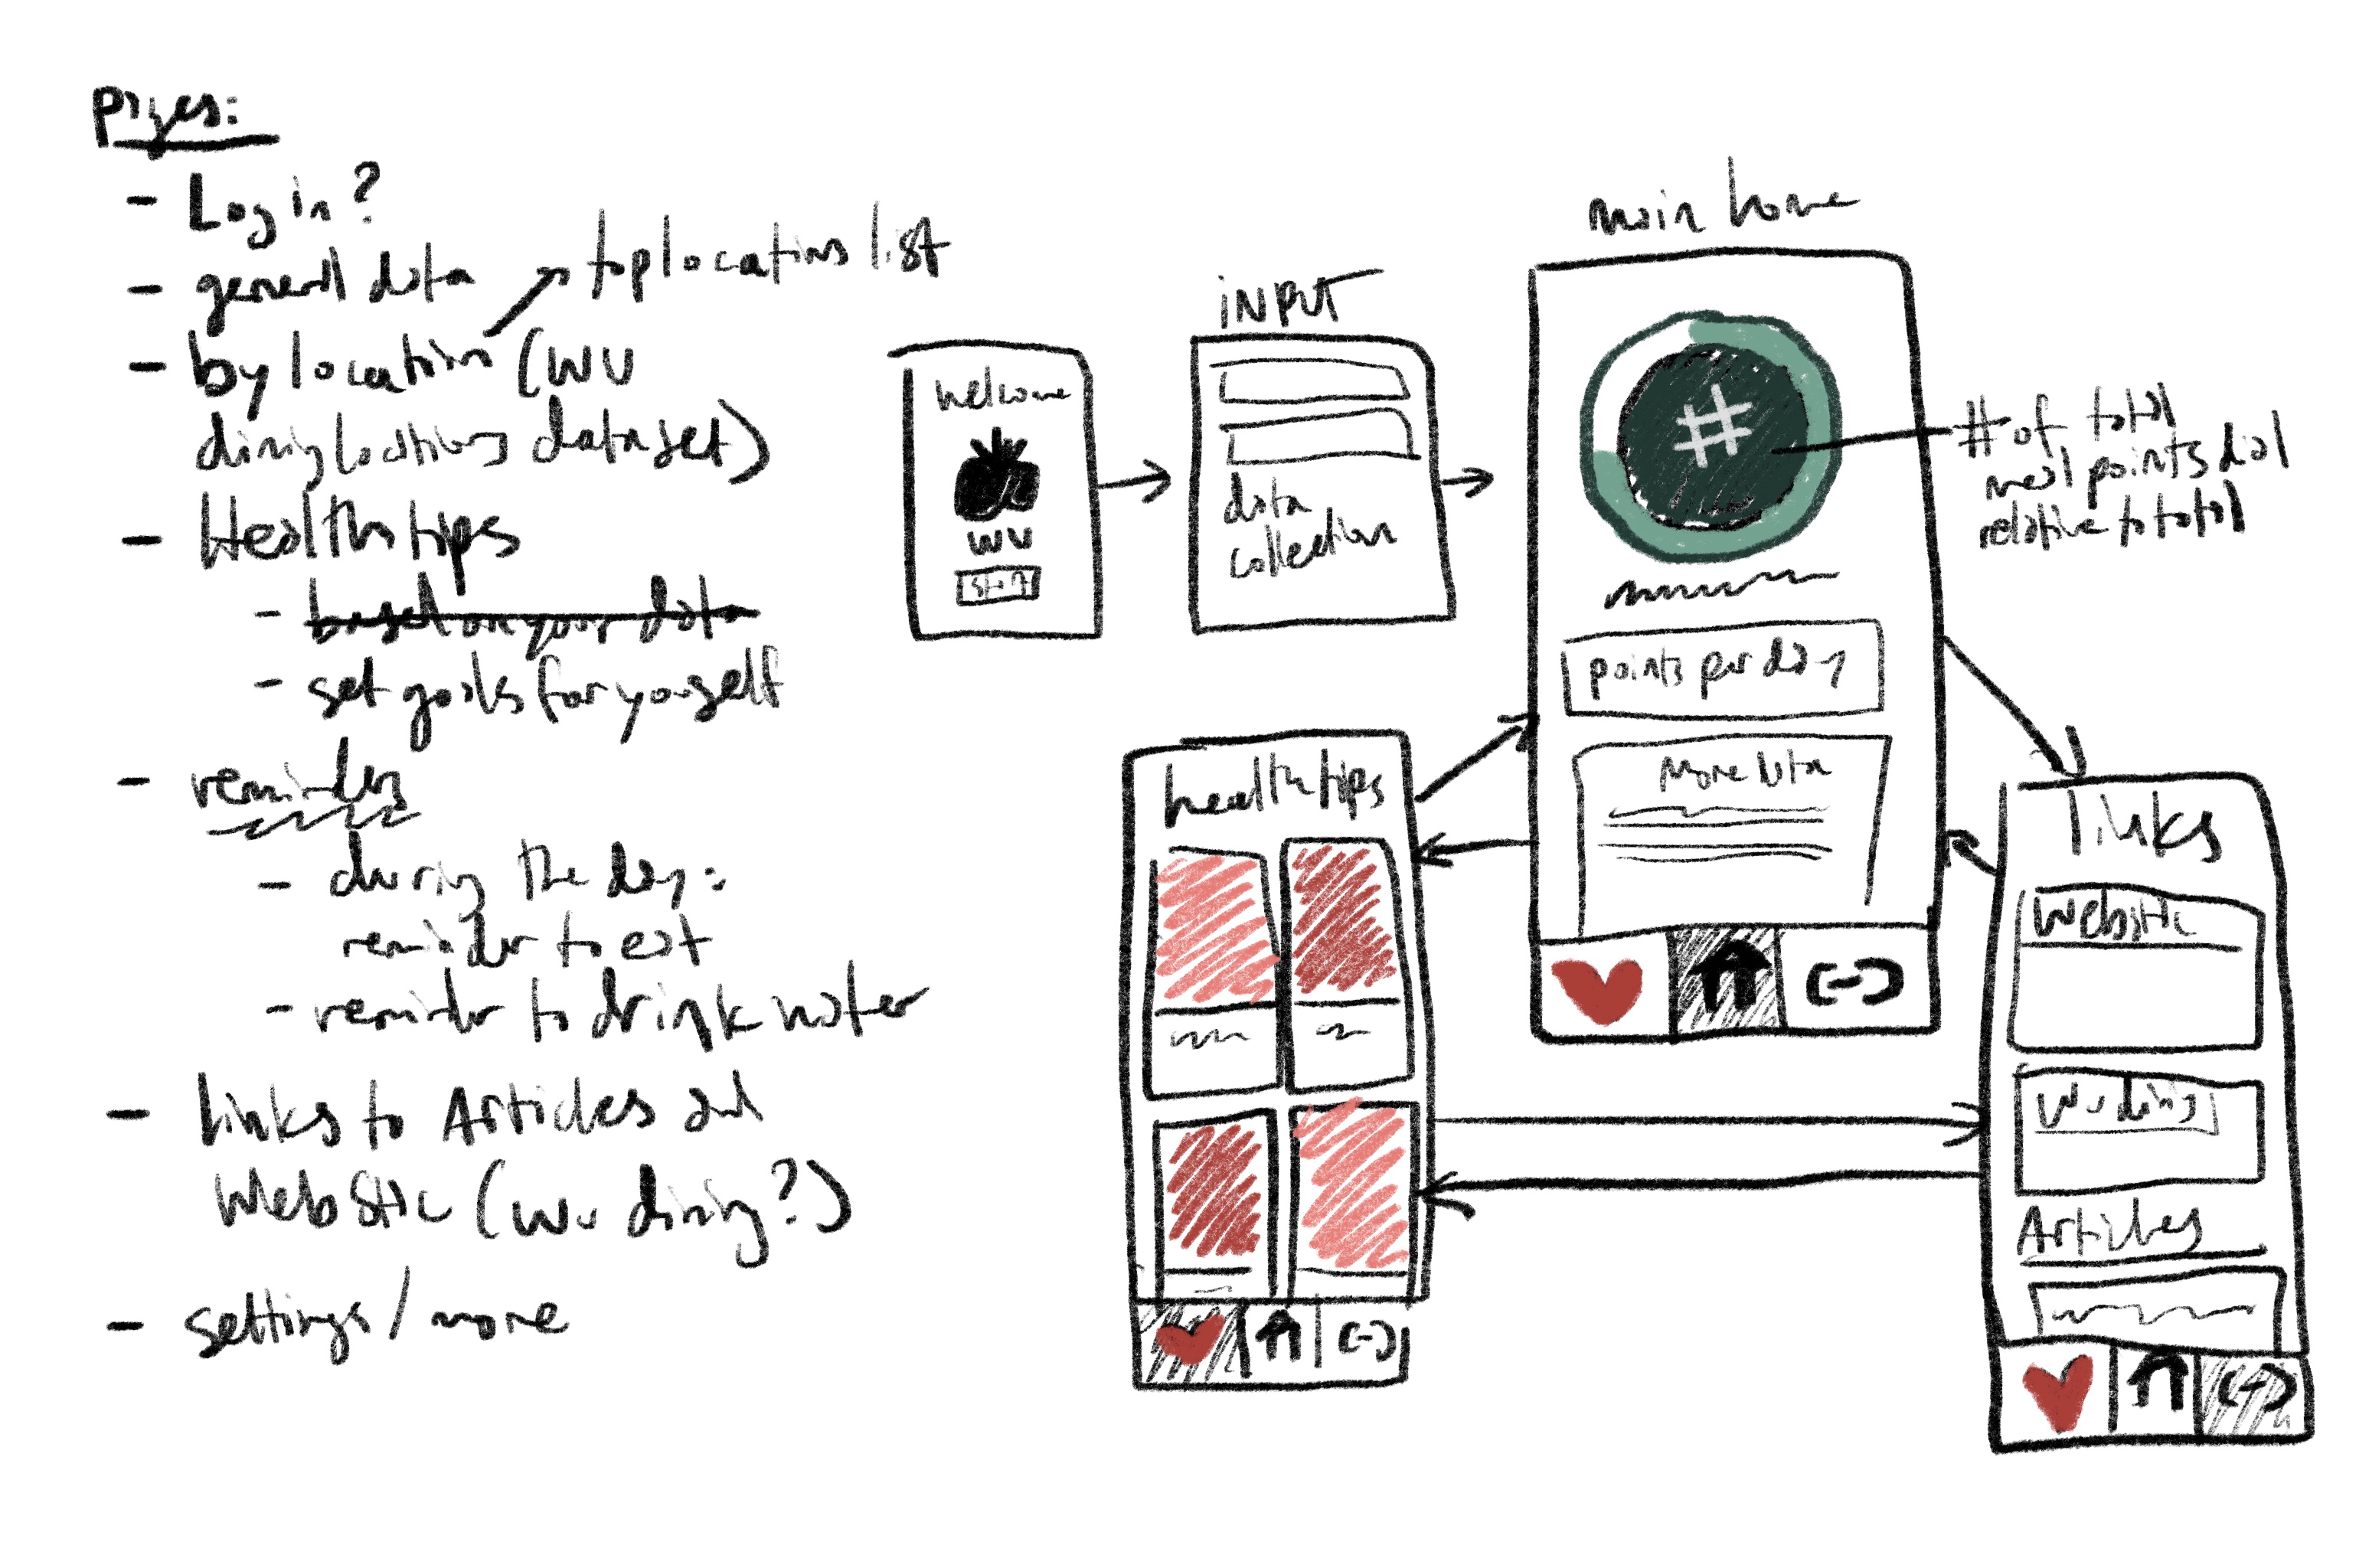 Pages:
- Log in?
- general data
- by location (WU
top locations list
dining locations dataset)
- Health tips
- based on your data
- set goals for yourself
- reminders
- during the day:
reminder to eat
- reminder to drink water
- Links to Articles and
Website (WU dining?)
- settings / more
welcome
WU
start
INPUT
data
collection
main home
#
# of total
meal points dial
relative to total
points per day
more data
health tips
links
Website
WU dining
Articles